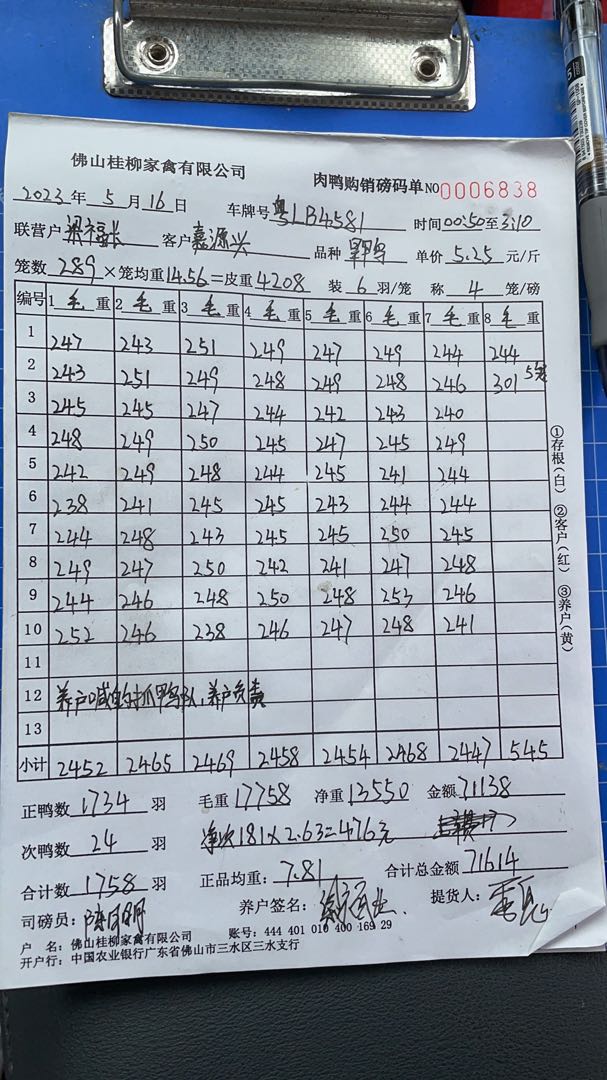 佛山桂柳家禽有限公司
肉鸭购销磅码单 NO 0006838
2023年 5月 16日 车牌号 粤LB4581 时间 00:50至3:10
联营户 梁福长 客户 嘉源兴 品种 单价 5.25 元/斤
笼数 289 ×笼均重14.56=皮重4208 装 6 羽/笼 称 4 笼/磅
编号 1 毛 重 2 毛 重 3 毛 重 4 毛 重 5 毛 重 6 毛 重 7 毛 重 8 毛 重
1 247 243 251 249 247 249 244 244
2 243 251 249 248 249 248 246 301 5笼
3 245 245 247 244 242 243 240
4 248 249 250 245 247 245 249
5 242 249 248 244 245 241 244
6 238 241 245 245 243 244 244
7 244 248 243 245 245 250 245
8 249 247 250 242 241 247 248
9 244 246 248 250 248 253 246
10 252 246 238 246 247 248 241
11
12 养户喊的抓鸭队,养户负责
13
小计 2452 2465 2469 2458 2454 2468 2447 545
正鸭数 1734 羽 毛重 17758 净重 13550 金额 71138
次鸭数 24 羽 净次181×2.63=476元
合计数 1758 羽 正品均重: 7.81 合计总金额 71614
司磅员: 养户签名: 提货人:
户 名: 佛山桂柳家禽有限公司 账号: 444 401 010 400 169 29
开户行: 中国农业银行广东省佛山市三水区三水支行
①存根(白) ②客户(红) ③养户(黄)